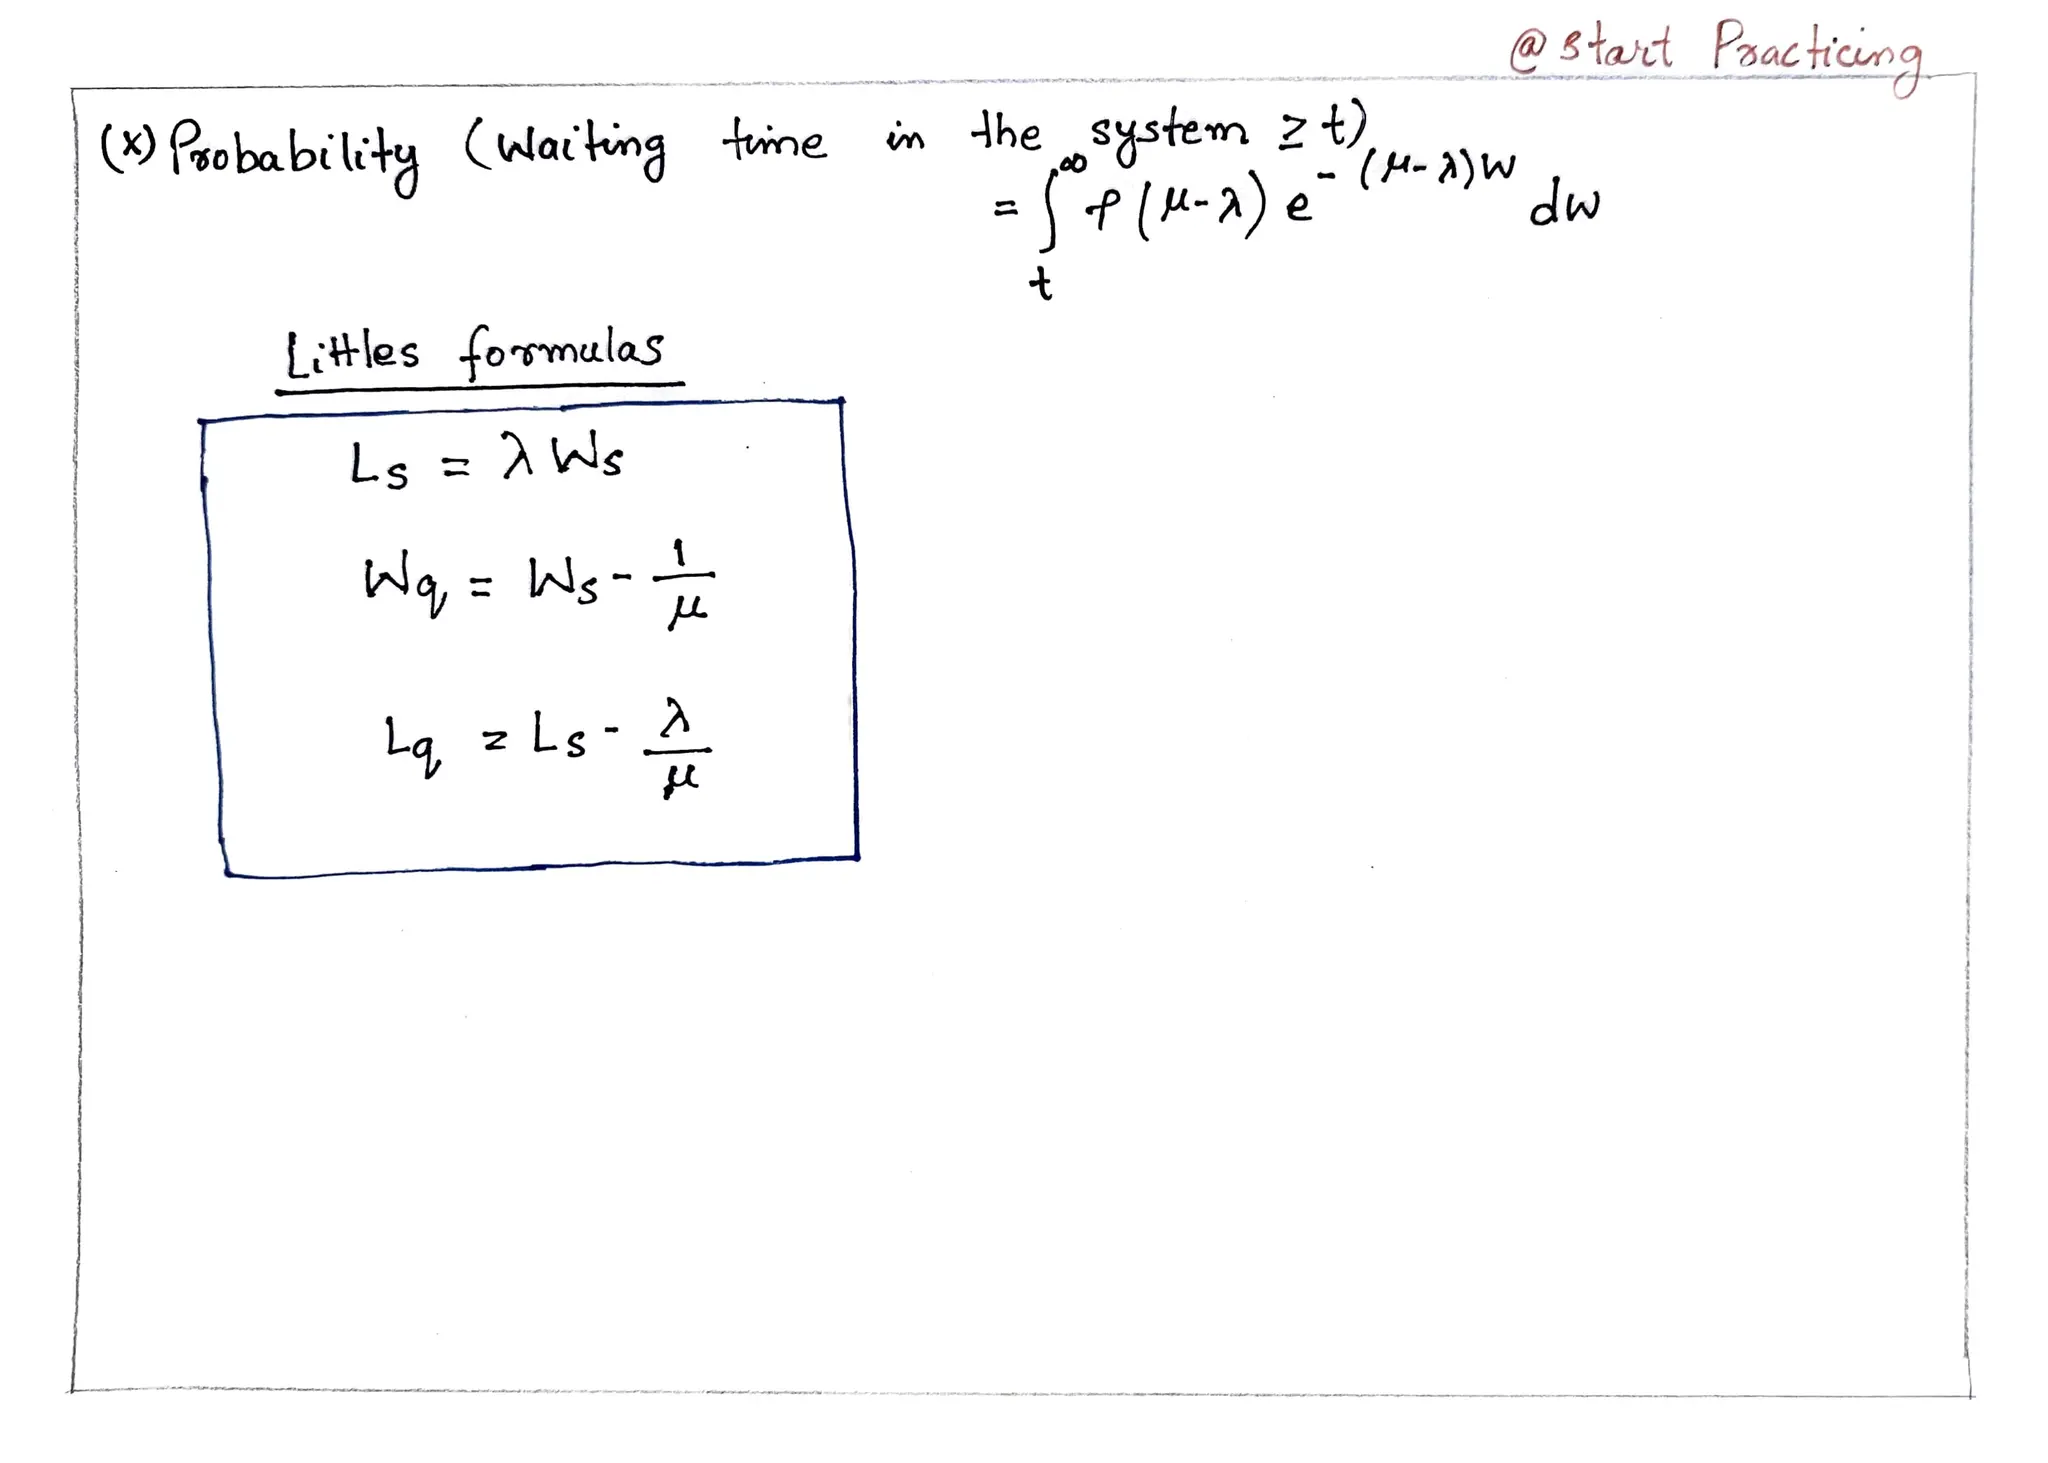 @ Start Practicing
(X) Probability (Waiting time in the system ≥ t)
= ∫_t^∞ ρ (μ-λ) e^{-(μ-λ)w} dw
Littles formulas
Ls = λ Ws
Wq = Ws - 1/μ
Lq = Ls - λ/μ